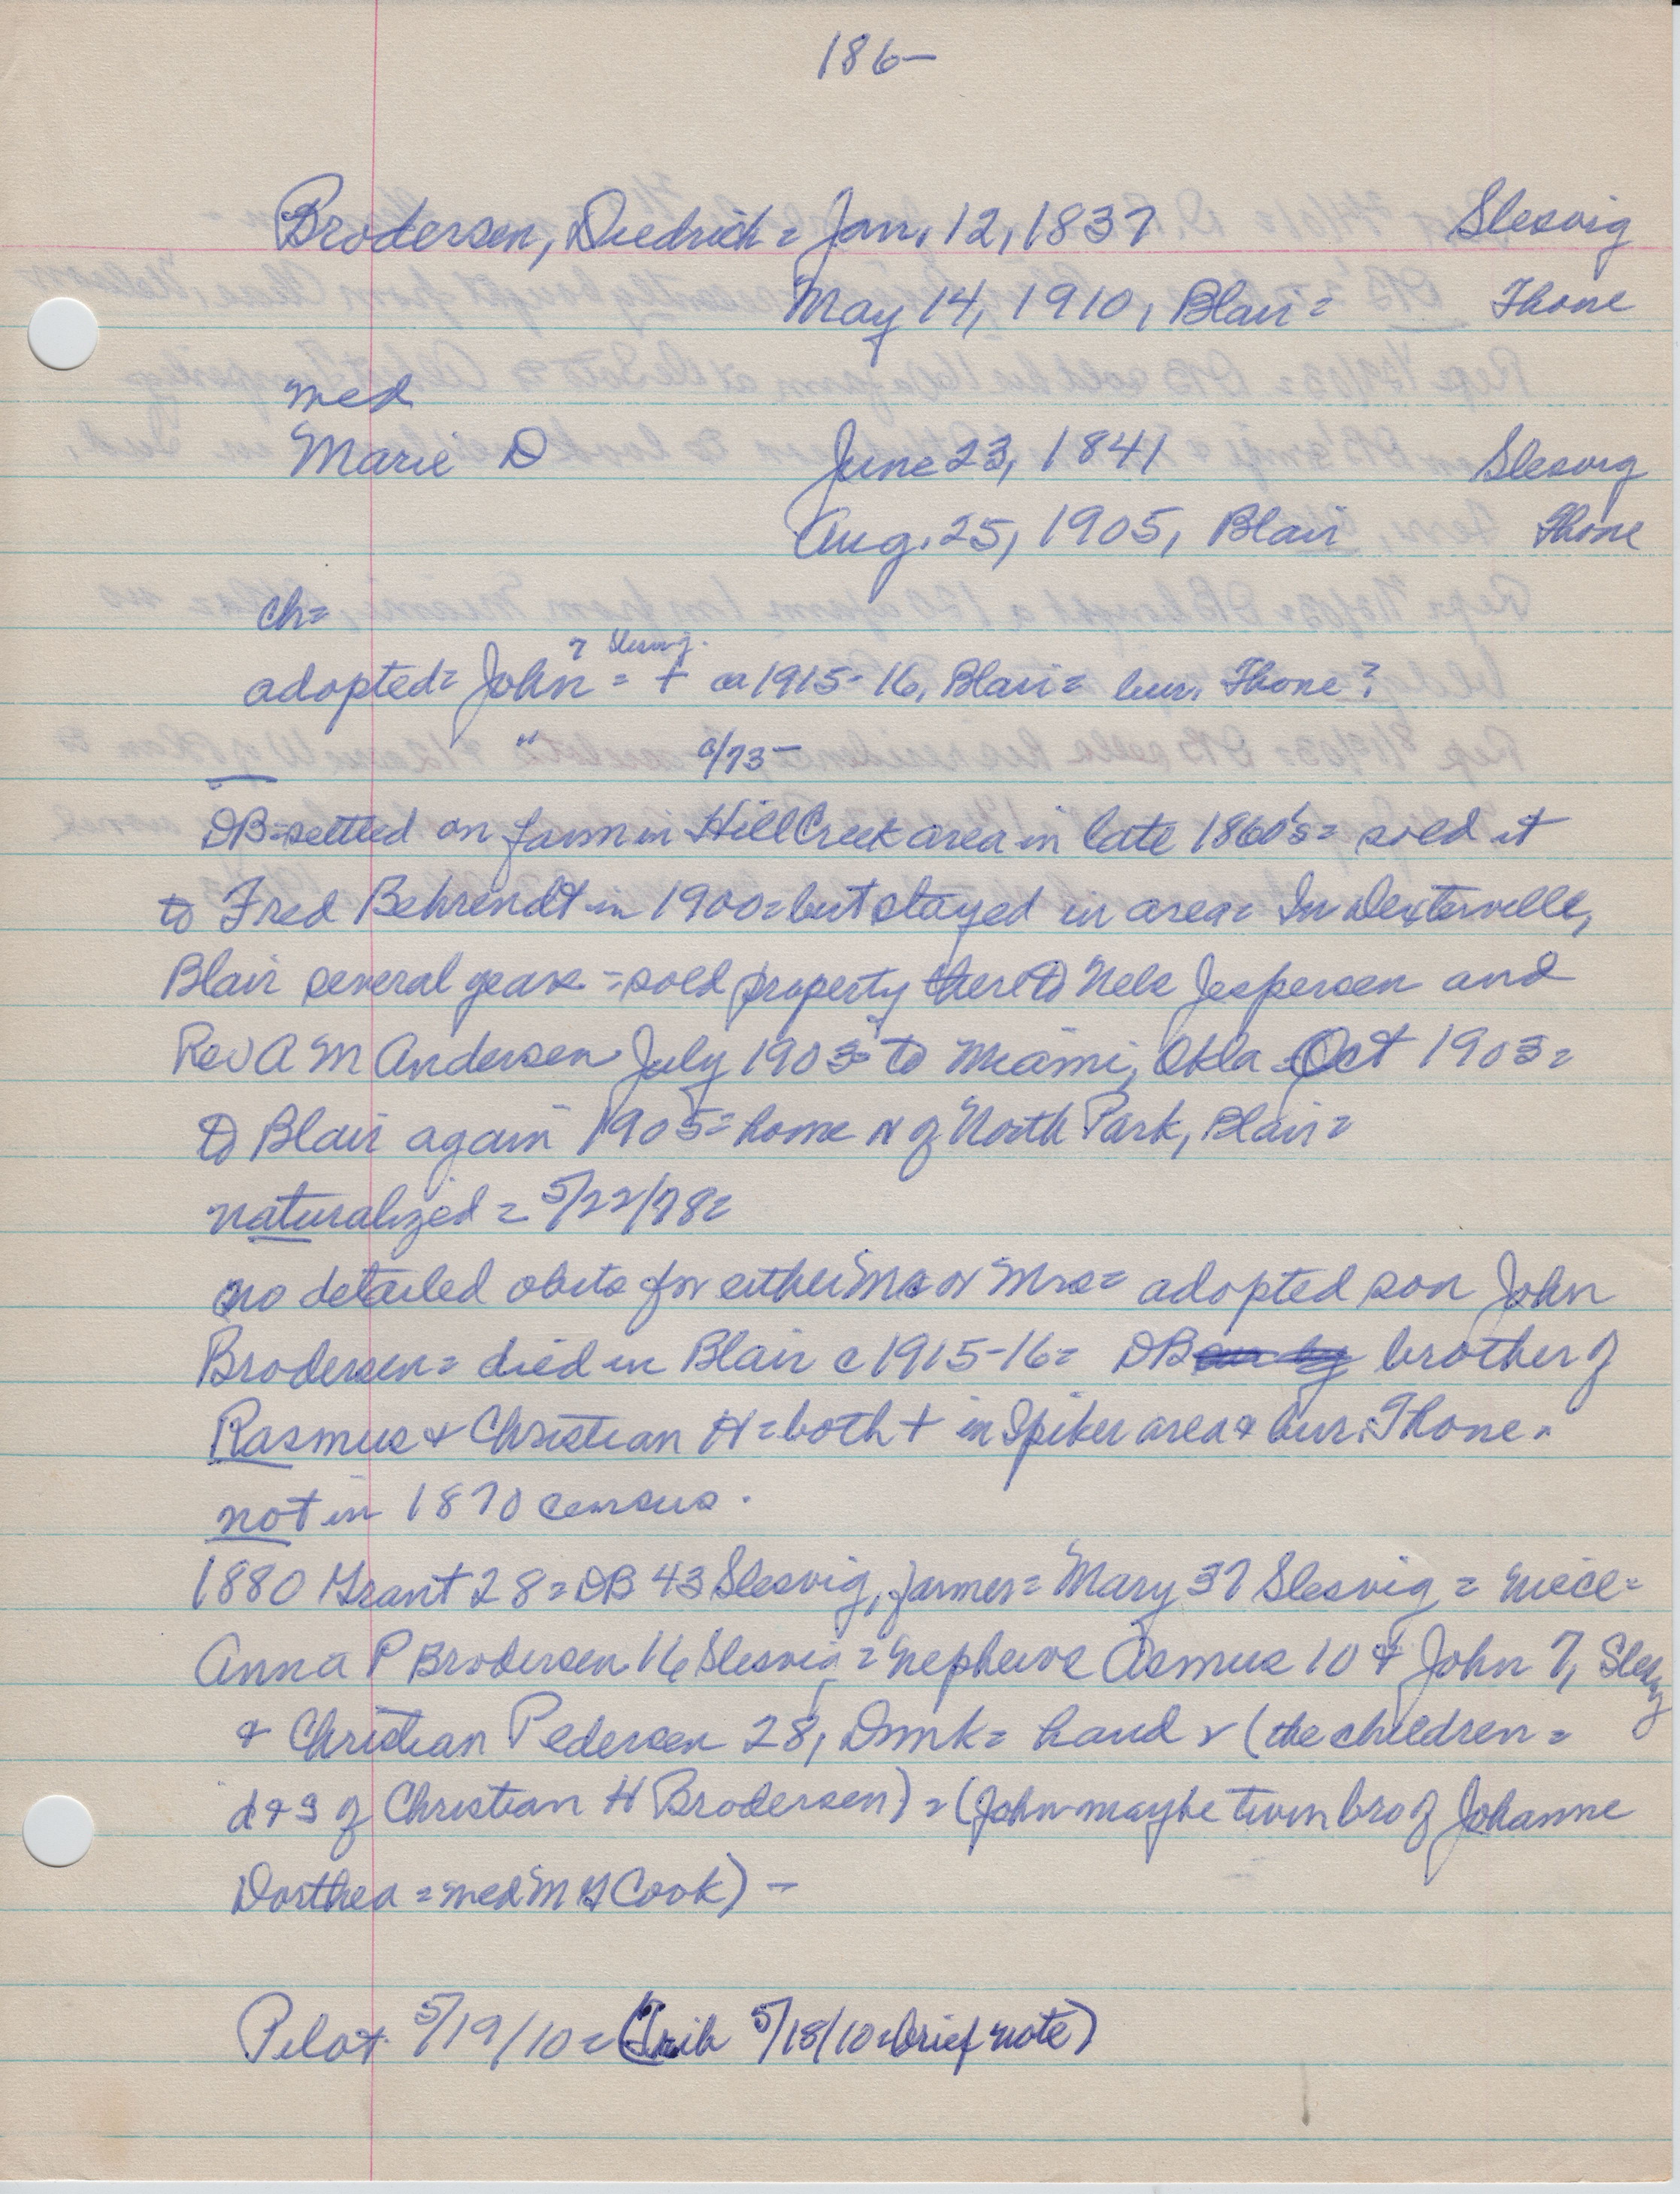 186-
Brodersen, Diedrich = Jan. 12, 1837 Slesvig
May 14, 1910, Blair = Thone
med
Marie D June 23, 1841 Slesvig
Aug. 25, 1905, Blair Thone
ch=
? Slesvig.
adopted = John = + ca 1915-16, Blair = bur. Thone?
" c/73-
DB = settled on farm in Hill Creek area in late 1860's = sold it
to Fred Behrendt in 1900 = but stayed in area = In Dexterville,
Blair several years = sold property there to Nels Jespersen and
Rev A M Andersen July 1903 = to Miami, Okla = Oct 1903 =
to Blair again 1905 = home N of North Park, Blair =
naturalized = 5/22/78 =
no detailed obits for either Mr or Mrs = adopted son John
Brodersen = died in Blair c 1915-16 = DB brother of
Rasmus & Christian H = both + in Spiker area & bur. Thone.
not in 1870 census.
1880 Grant 28 = DB 43 Slesvig, farmer = Mary 37 Slesvig = niece =
Anna P Brodersen 16 Slesvig = nephews Asmus 10 & John 7, Slesvig
& Christian Pedersen 28, Dmk = hand & (the children =
d & s of Christian H Brodersen) = (John maybe twin bro of Johanne
Dorthea = med M G Cook) -
Pilot 5/19/10 = (Trib 5/18/10 = brief note)